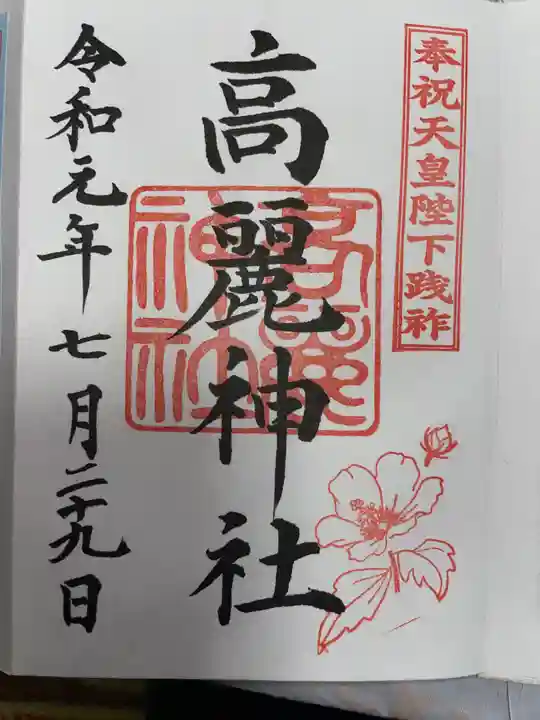 奉祝天皇陛下践祚
高麗神社
高麗神社
令和元年七月二十九日